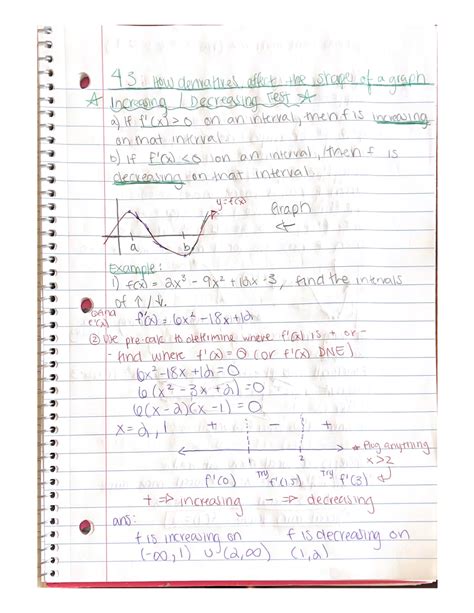 4.3 How derivatives affect the shape of a graph
Increasing / Decreasing Test
a) If f'(x) > 0 on an interval, then f is increasing
on that interval
b) If f'(x) < 0 on an interval, then f is
decreasing on that interval
y=f(x)
Graph
a b
Example:
1) f(x) = 2x³ - 9x² + 12x - 3, find the intervals
of ↑/↓.
① find f'(x) f'(x) = 6x² - 18x + 12
② Use pre-calc to determine where f'(x) is + or -
- find where f'(x) = 0 (or f'(x) DNE)
6x² - 18x + 12 = 0
6(x² - 3x + 2) = 0
6(x-2)(x-1) = 0
x = 2, 1 + - +
1 2
* Plug anything
x>2
f'(0) Try f'(1.5) Try f'(3)
+ ⇒ increasing - ⇒ decreasing
ans:
f is increasing on f is decreasing on
(-∞, 1) ∪ (2, ∞) (1, 2)